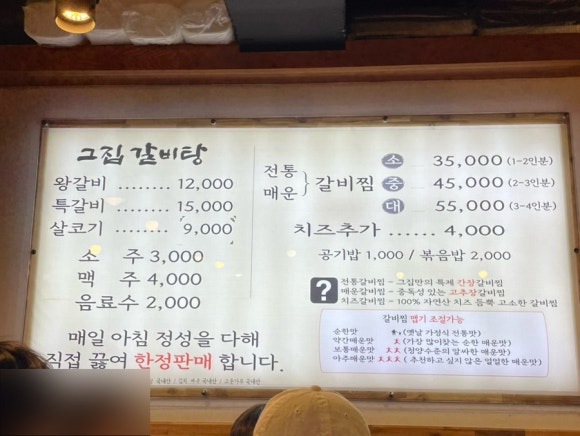 그집 갈비탕
왕갈비 ........ 12,000
특갈비 ........ 15,000
살코기 ........ 9,000
소 주 3,000
맥 주 4,000
음료수 2,000
매일 아침 정성을 다해
직접 끓여 한정판매 합니다.
전통
매운 } 갈비찜
소 35,000 (1-2인분)
중 45,000 (2-3인분)
대 55,000 (3-4인분)
치즈추가 ...... 4,000
공기밥 1,000 / 볶음밥 2,000
?
전통갈비찜 - 그집만의 특제 간장갈비찜
매운갈비찜 - 중독성 있는 고추장갈비찜
치즈갈비찜 - 100% 자연산 치즈 듬뿍 고소한 갈비찜
갈비찜 맵기 조절가능
순한맛 (옛날 가정식 전통맛)
약간매운맛 (가장 많이찾는 순한 매운맛)
보통매운맛 (청양수준의 알싸한 매운맛)
아주매운맛 ( 추천하고 싶지 않은 얼얼한 매운맛)